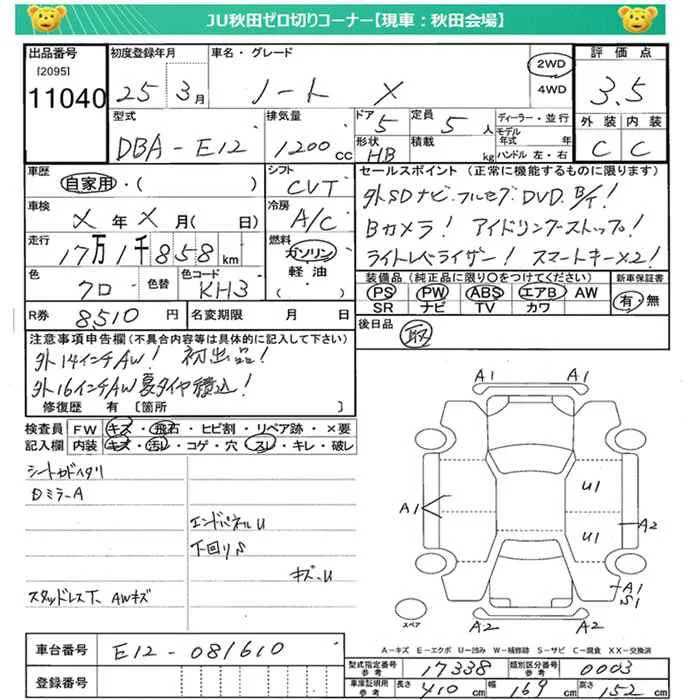 JU秋田ゼロ切りコーナー【現車：秋田会場】
出品番号 初度登録年月 車名・グレード 評価点
[2095]
11040 25 3月 ノート X 2WD 4WD 3.5
型式 排気量 ドア 定員 ディーラー・並行 外装 内装
DBA-E12 1200cc 5 5人 モデル年式 年 C C
形状 積載 HB kg ハンドル 左・右
車歴 シフト セールスポイント (正常に機能するものに限ります)
自家用・( ) CVT 外SDナビ.フルセグDVD.B/T!
車検 冷房 Bカメラ! アイドリングストップ!
X年X月( 日) A/C ライトレベライザー! スマートキーX2!
走行 燃料
17万1千858km ガソリン 軽油・( )
色 色替 色コード 装備品 (純正品に限り〇をつけてください) 新車保証書
クロ KH3 PS PW ABS エアB AW 有・無
SR ナビ TV カワ
R券 8510円 名変期限 月 日 後日品 取
注意事項申告欄(不具合内容等は具体的に記入して下さい)
外14インチAW! 初出品!
外16インチAW夏タイヤ積込!
修復歴 有 [箇所 ]
検査員 FW キズ・飛石・ヒビ割・リペア跡・×要
記入欄 内装 キズ・汚レ・コゲ・穴・スレ・キレ・破レ
シートカドヘタリ
Dミラ-A
エンドパネルU
下回りS
キズ.U
スタッドレスT. AWキズ
A1 A1
A1 U1
U1 A2
A1
S1
A2 A2
スペア
A-キズ E-エクボ U-凹み W-補修跡 S-サビ C-腐食 XX-交換済
車台番号 E12-081610
登録番号
型式指定番号 参考 17338 類別区分番号 参考 0003
車庫証明用 参考 長さ 410cm 幅 169cm 高さ 152cm